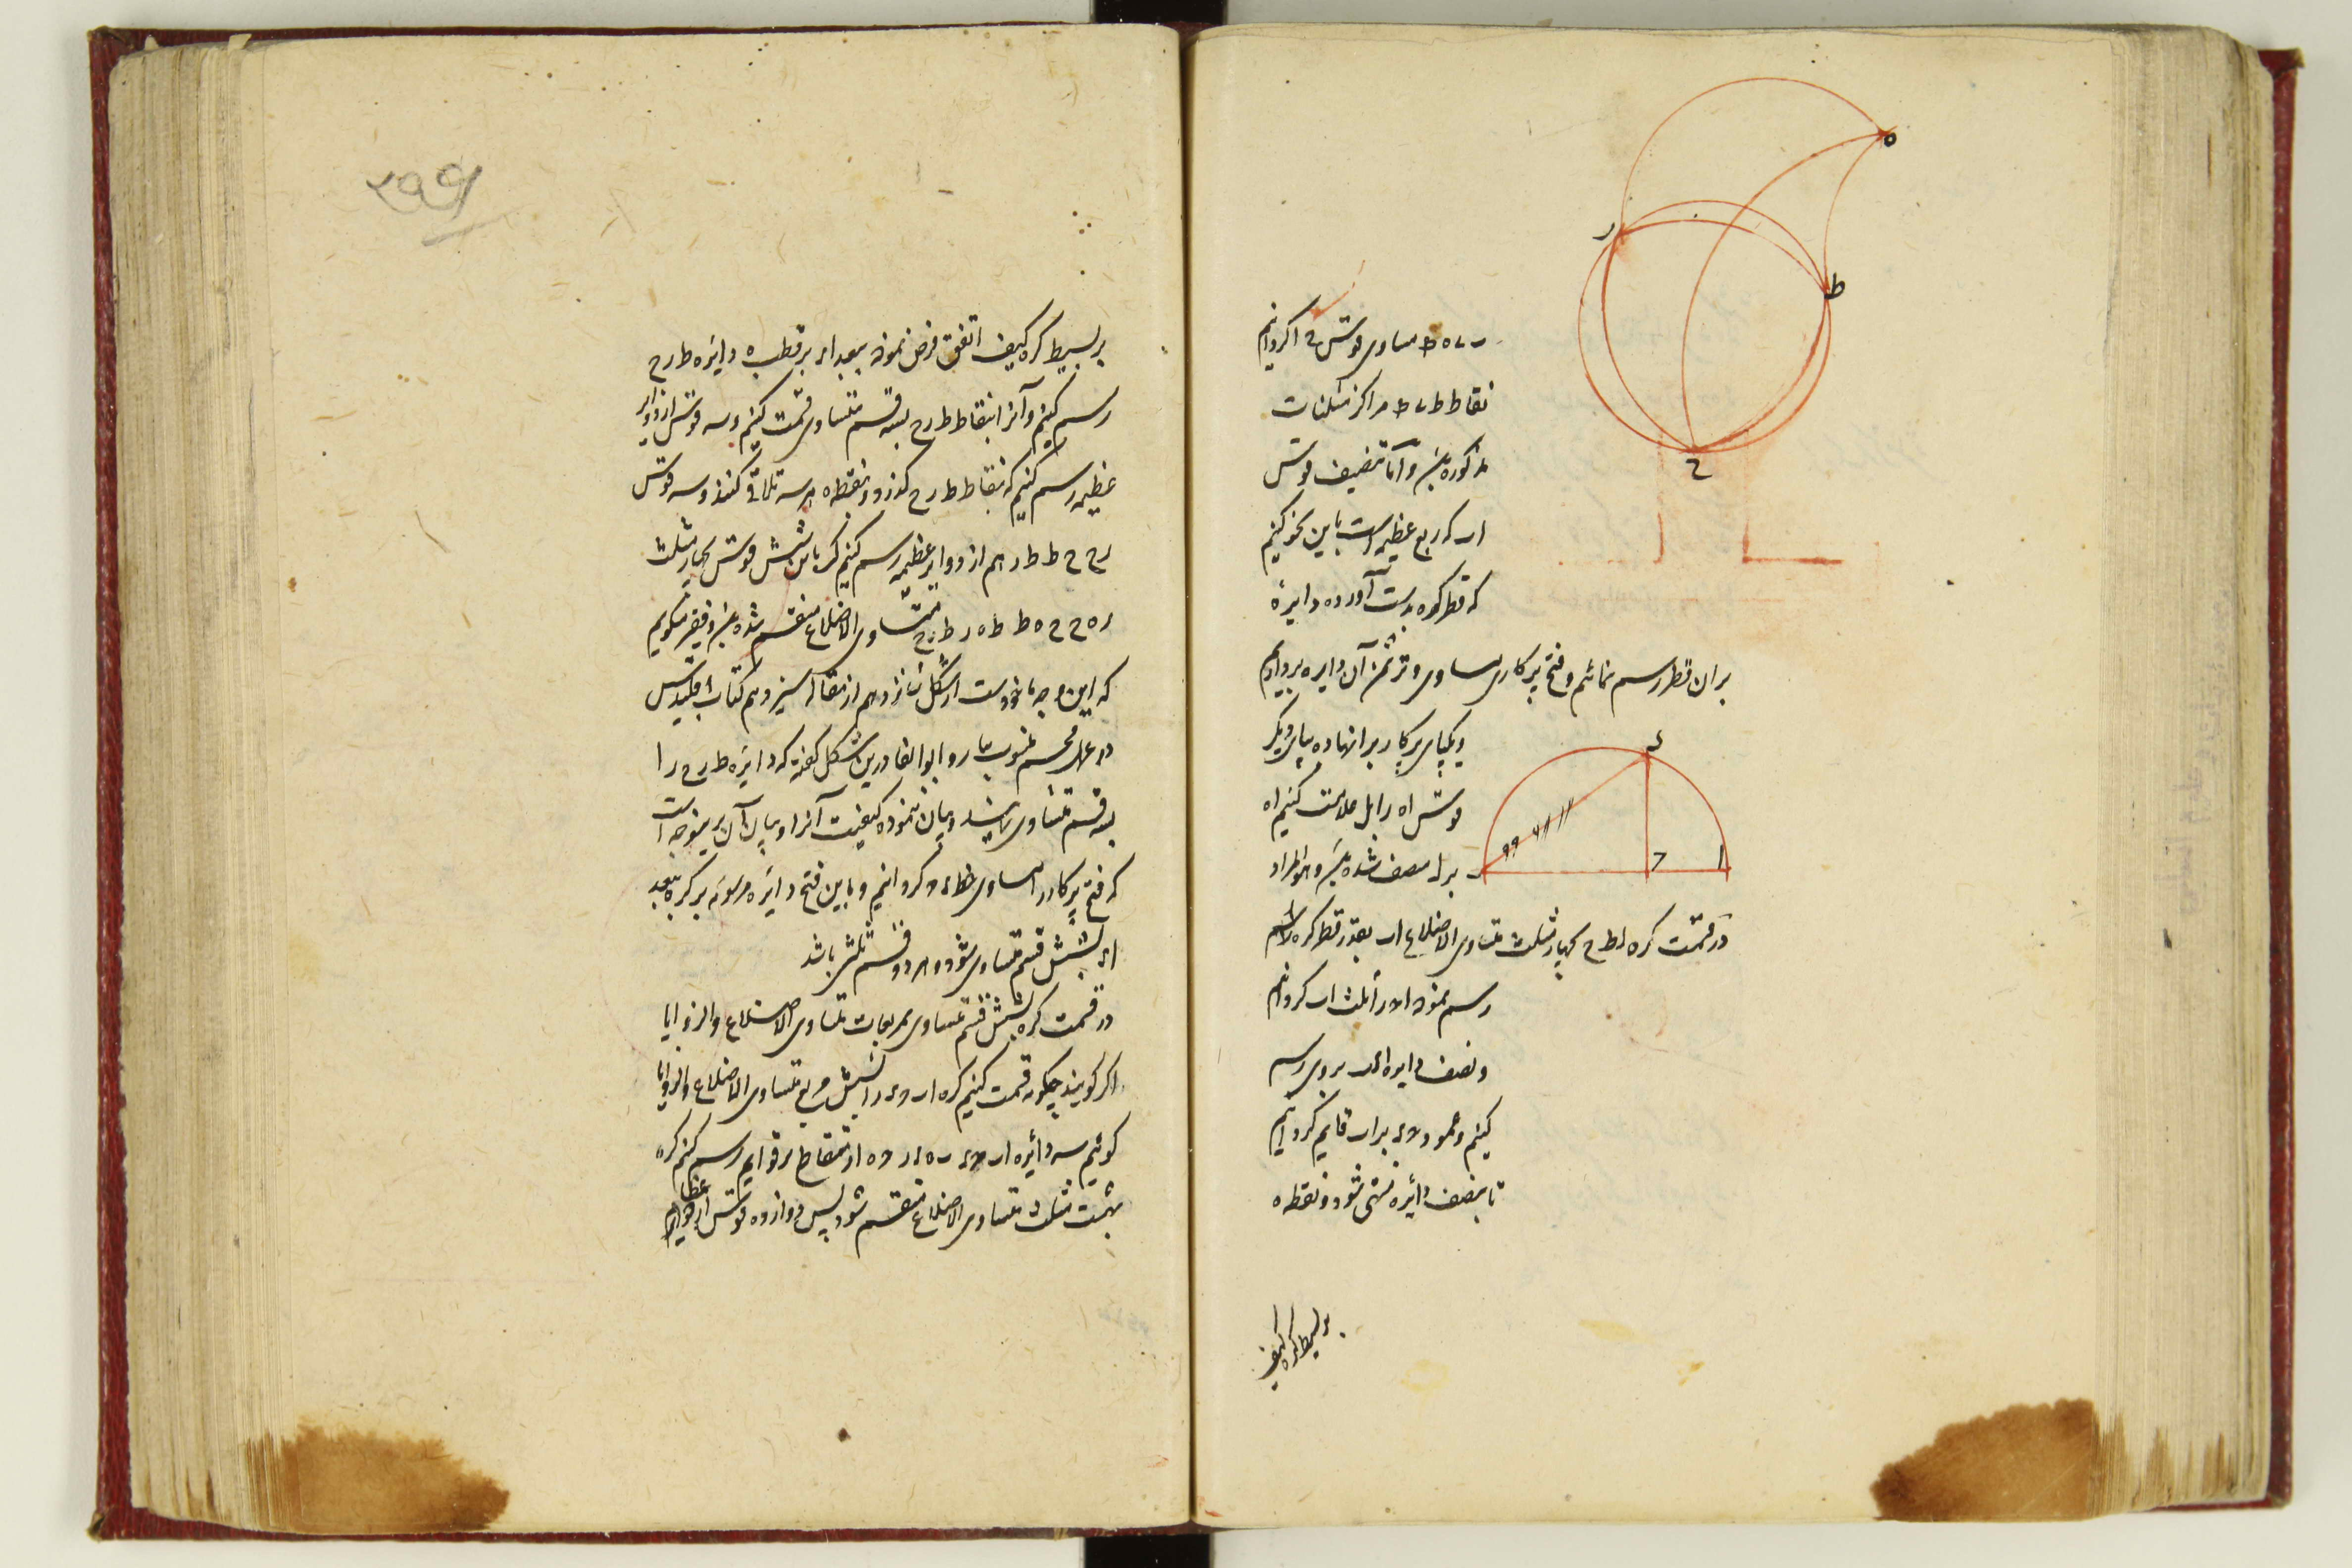 ه
ر
ط
ح
مساوی قوس ح ا کردانیم
نقاط ط ء ط مراکز مثلثات
مذکوره باشند و اما تنصیف قوس
ا ب که ربع عظیمه است باین نحو کنیم
که قطر کره بدست آورده دایرهٔ
بران قطر رسم نمائیم و فتح پرکار مساوی وتر ثمن آن دایره
و یکپای پرکار بر ا نهاده بپای دیگر
قوس اه را بل علامت کنیم
منصف شده باشد
ی
ح
ا
ب
در قسمت کره بچهار مثلث متساوی الاضلاع ا ب بقدر قطر کره
رسم نموده ا ح را ثلث ا ب کردانیم
و نصف دایره ا ی ب بروی رسم
کنیم و عمود ح ی بر ا ب قایم کردانیم
تا بنصف دائره منتهی شود و نقطه ه
بر بسیط کره کیف
۲۹۹
بر بسیط کره کیف اتفق فرض نموده ببعد ا ی بر قطب ه دایره ط ر ح
رسم کنیم و آنرا بنقاط ط ر ح بسه قسم متساوی قسمت کنیم و سه قوس از دوایر
عظیمه رسم کنیم که بنقاط ط ر ح کذرد و بنقطه ه هر سه تلاقی کنند و سه قوس
ر ح ح ط ط ر هم از دوایر عظیمه رسم کنیم کره باین شش قوس بچهار مثلث
ر ه ح ح ه ط ط ه ر ط ر ح متساوی الاضلاع منقسم شده باشد و فقیر میکویم
که این وجه ماخوذست از شکل شانزدهم از مقاله سیزدهم کتاب اقلیدس
در عمل مجسم منسوب بنار و ابو الوفا درین شکل کفته که دایره ط ر ح را
بسه قسم متساوی نمایند و بیان ننموده کیفیت آنرا و بیان آن برینوجه است
که فتح پرکار را مساوی خط ی ح کردانیم و باین فتح دایره مرسومه بر کره ببعد
ا ی بشش قسم متساوی شود و هر دو قسم ثلثی باشد
در قسمت کره بشش قسم متساوی بمربعات متساوی الاضلاع والزوایا
اکر کویند چکونه قسمت کنیم کره ا ب ح ی را بشش مربع متساوی الاضلاع والزوایا
کوئیم سه دائره ا ب ح ی ب ه ی ر ا ر ح ه از تقاطع بر قوایم رسم کنیم کره
بهشت مثلث متساوی الاضلاع منقسم شود پس دوازده قوس از دوایر عظام